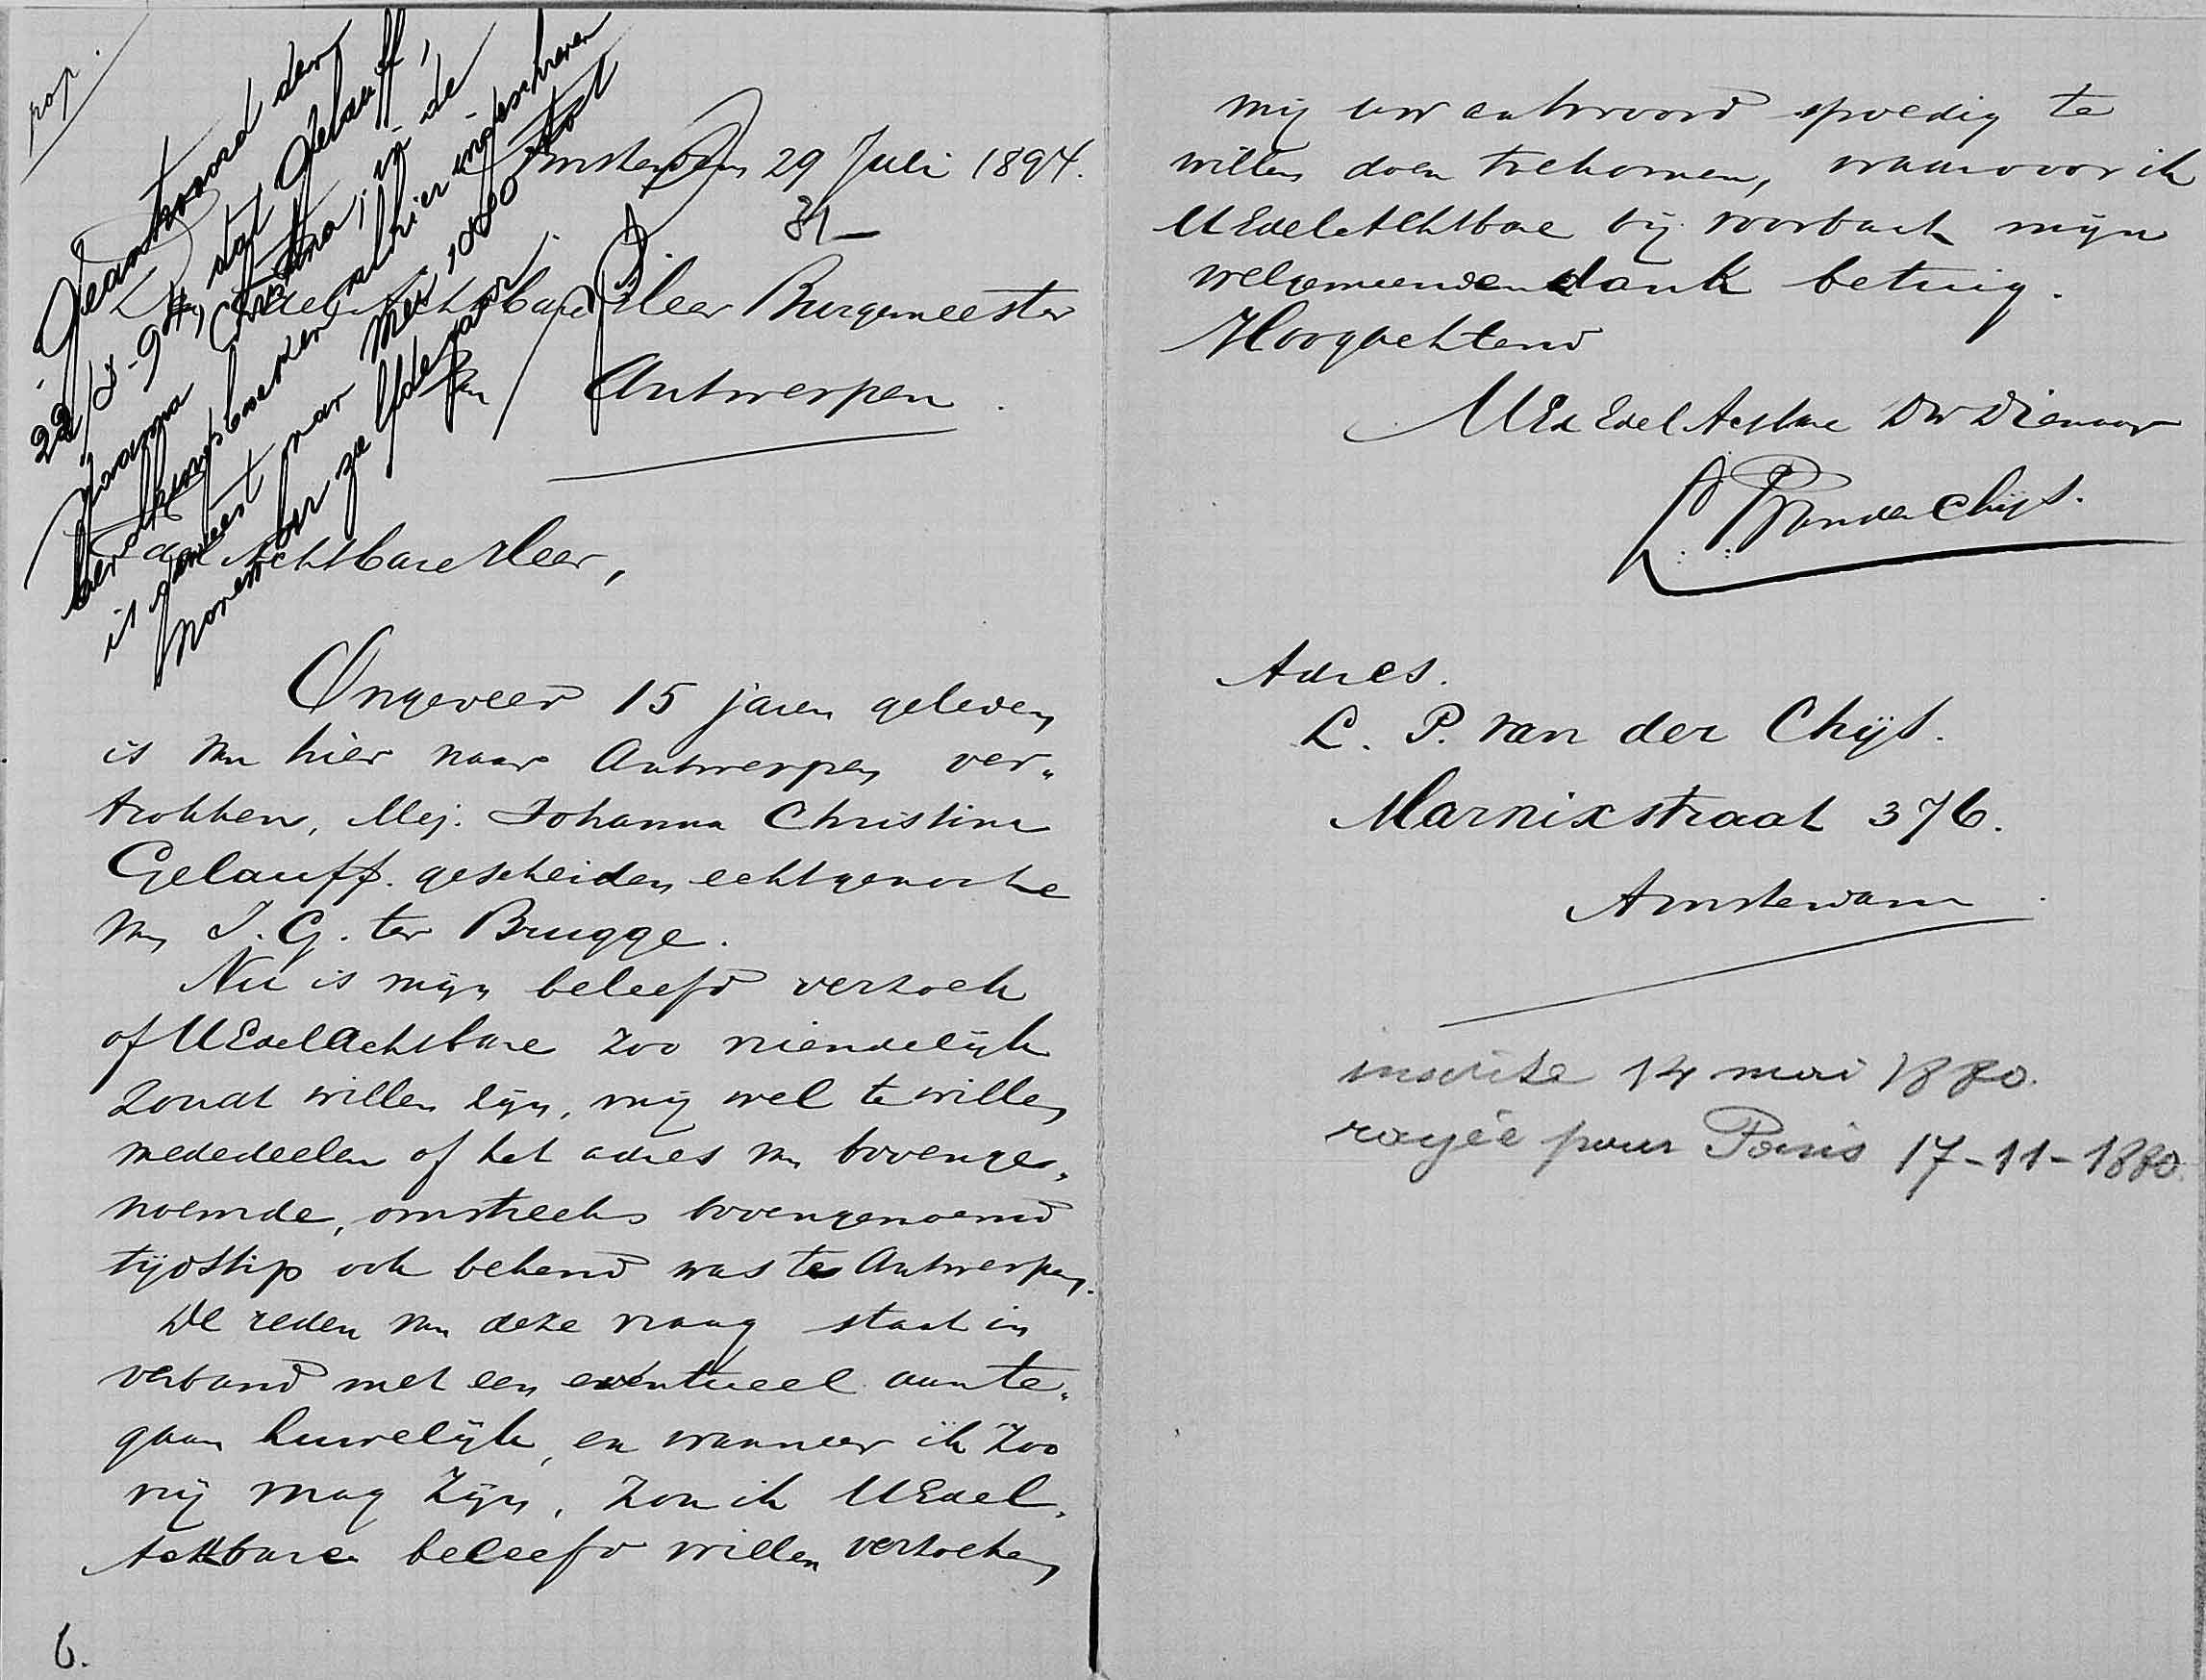 pop.
Beantwoord den
22/8-94, dat Gelauff,
Joanna Christina, in de
bevolkingsboeken alhier ingeschreven
is geweest van Mei 1880 tot
November ze lfde jaar.
Amsterdam 29 Juli 1894.
31-
Den Edel Achtbaren Heer Burgemeester
van Antwerpen.
Edel Achtbare Heer,
Ongeveer 15 jaren geleden
is van hier naar Antwerpen ver-
trokken, Mej. Johanna Christina
Gelauff. gescheiden echtgenoote
van J. G. ter Brugge.
Nu is mijn beleefd verzoek
of UEdelAchtbare zoo vriendelijk
zoudt willen zijn, mij wel te willen
mededeelen of het adres van bovenge-
noemde, omstreeks bovengenoemd
tijdstip ook bekend was te Antwerpen.
De reden van deze vraag staat in
verband met een eventueel aante-
gaan huwelijk, en wanneer ik zoo
vrij mag zijn, zou ik UEdel-
Achtbare beleefd willen verzoeken
6.
mij uw antwoord spoedig te
willen doen toekomen, waarvoor ik
UEdelAchtbare bij voorbaat mijn
welgemeenden dank betuig.
Hoogachtend
UEd Edel Actbare Dw Dienaar
L. P. van der Chijs.
Adres.
L. P. van der Chijs.
Marnixstraat 376.
Amsterdam.
inscrite 14 mai 1880.
rayée pour Paris 17-11-1880.